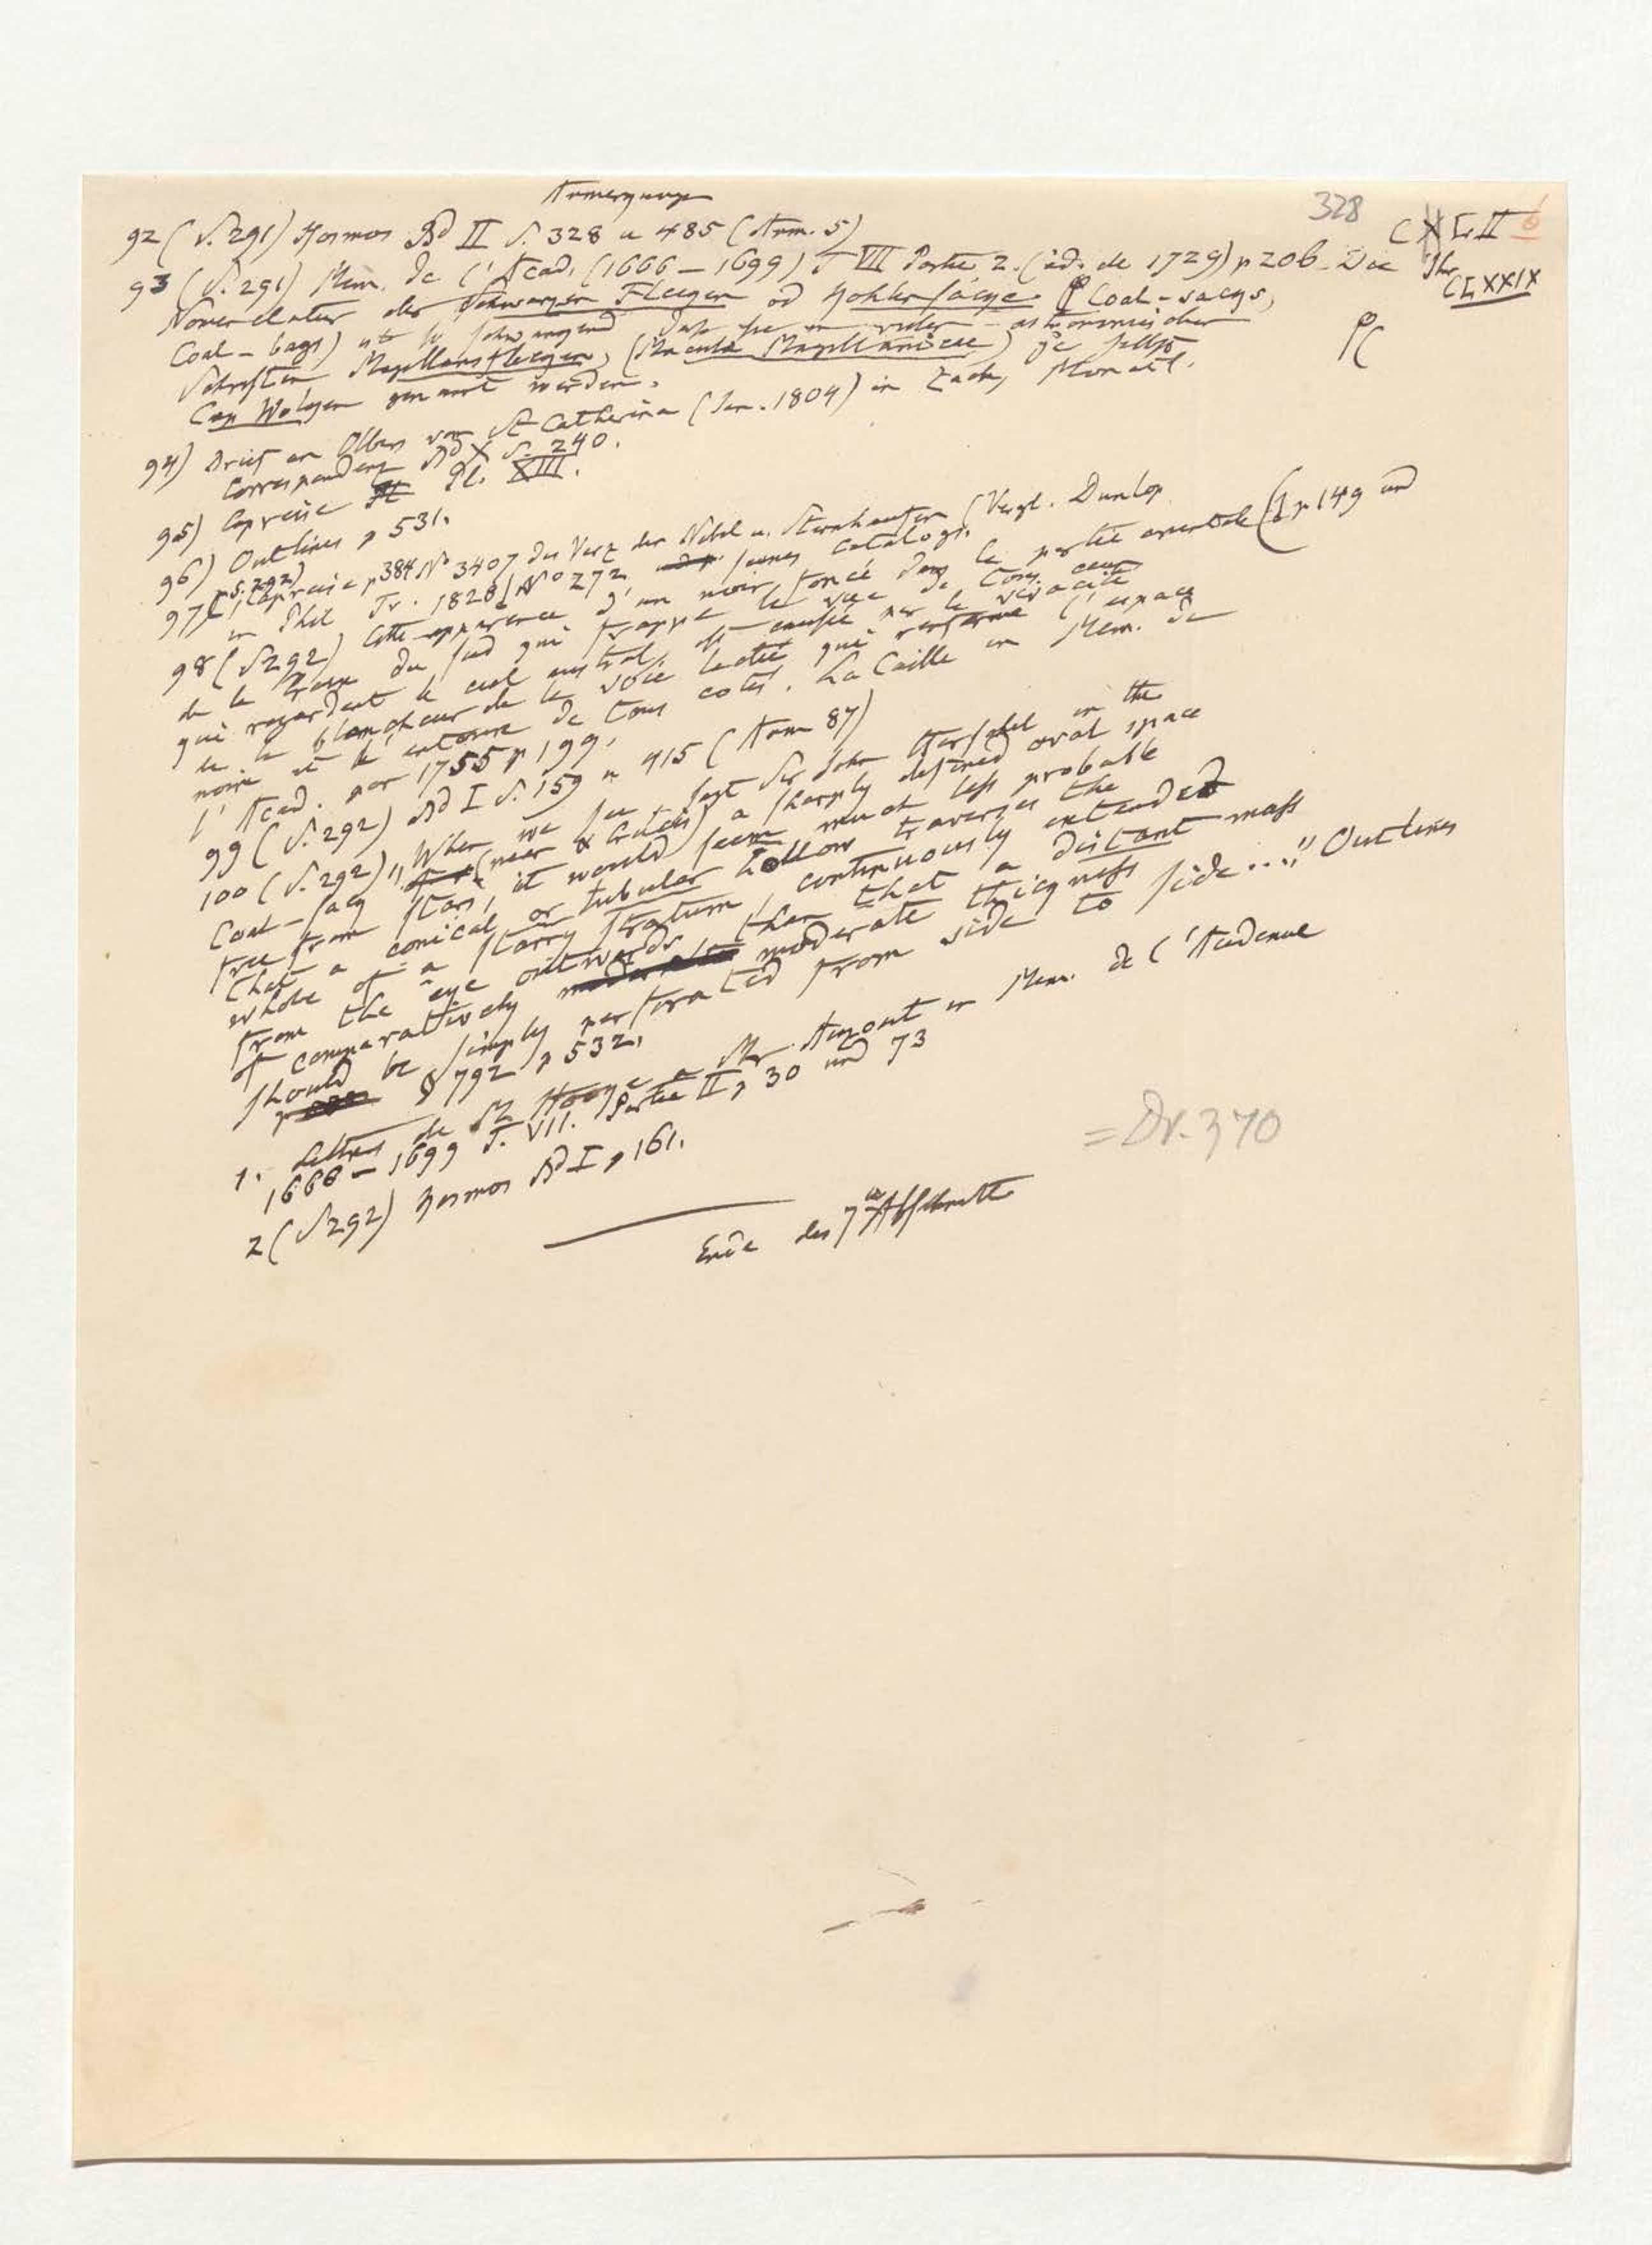 Anmerkungen
328
CXLII 6
CLXXIX
92 (S. 291) Kosmos Bd II S. 328 u 485 (Anm. 5)
93 (S. 291) Mem. de l'Acad. (1666–1699) T VII Partie 2. (éd. de 1729) p 206. Die
Nomenclatur der Schwarzen Flecken od Kohlensäcke (Coal-sacks,
Coal-bags) ist so schwankend daß sie in vielen astronomischen
Schriften Magellansflecken, (Macula Magellanicae) je selbst
Cap Wolken genannt werden.
94) Brief an Olbers von St Catherina (Jan. 1804) in Zach, Monatl.
Correspondenz Bd X S. 240.
95) Capreise Pl. XIII.
96) Outlines p 531.
97) (S. 292) Capreise p 384 No 3407 des Verz der Nebel u. Sternhaufen (Vergl. Dunlop
in Phil Tr. 1828 p 149 und No 272 seines Catalogs.
98 (S 292) Cette apparence d'un noir foncé dans la partie orientale
de la Croix du sud qui frappe la vue de tous ceux
qui regardent le ciel austral, est causée par la vivacité
de la blancheur de la voie lactée qui renferme l'espace
noir et l'entoure de tous cotés. La Caille in Mem. de
l'Acad. 1755 p 199.
99 (S. 292) Bd I S. 159 u 415 (Anm 87)
100 (S. 292) „When we see sagt Sir John Herschel in the
Coal-sack (near α Crucis) a sharply defined oval space
free from stars, it would seem much less probable
that a conical or tubular hollow traverses the
whole of a starry stratum, continuously extended
from the eye outwards, than that a distant mass
of comparatively moderate thickness
should be simply perforated from side to side ...." Outlines
§ 792 p 532.
1. Lettres de Mr Hooke a Mr Auzout in Mem. de l'Academie
1666–1699 T. VII. Partie II p 30 und 73
2 (S 292) Kosmos Bd I p 161.
= Dr. 370
Ende des 7ten Abschnitts